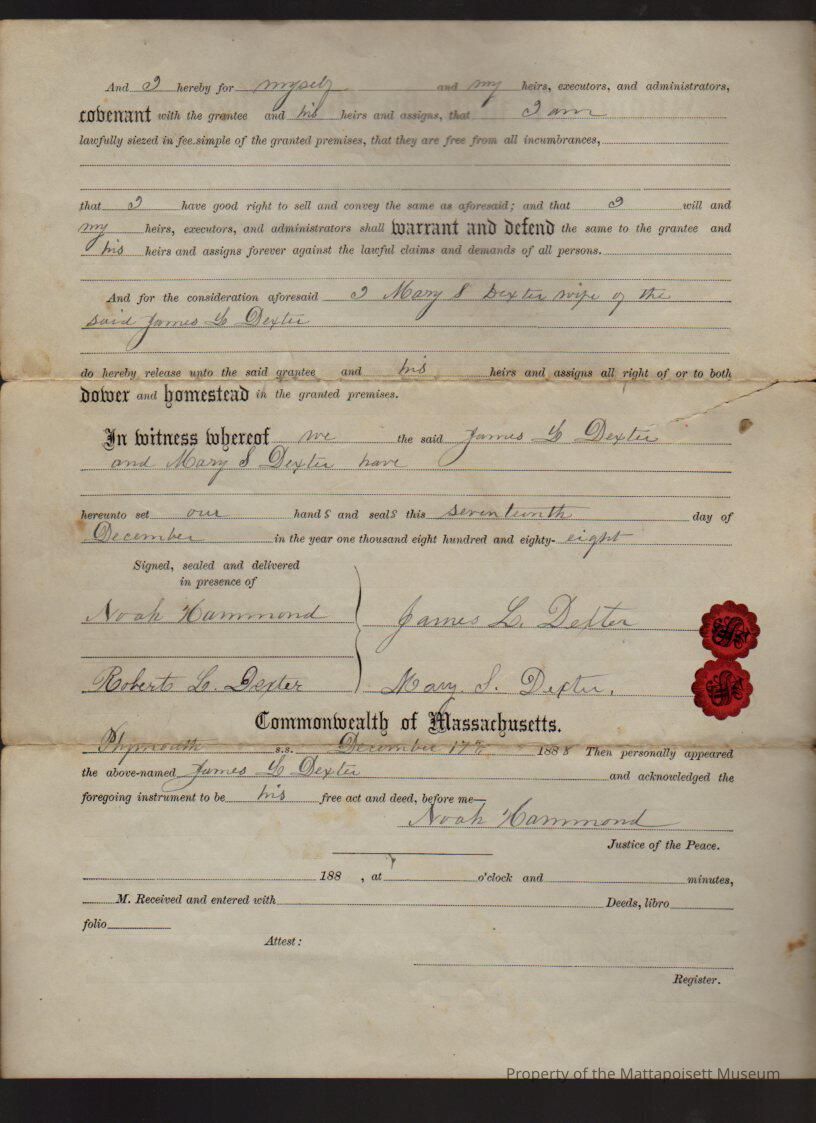 And I hereby for myself and my heirs, executors, and administrators,
covenant with the grantee and his heirs and assigns, that I am
lawfully siezed in fee simple of the granted premises, that they are free from all incumbrances,
that I have good right to sell and convey the same as aforesaid; and that I will and
my heirs, executors, and administrators shall warrant and defend the same to the grantee and
his heirs and assigns forever against the lawful claims and demands of all persons.
And for the consideration aforesaid I Mary S Dexter wife of the
said James L Dexter
do hereby release unto the said grantee and his heirs and assigns all right of or to both
dower and homestead in the granted premises.
In witness whereof we the said James L Dexter
and Mary S Dexter have
hereunto set our hands and seals this seventeenth day of
December in the year one thousand eight hundred and eighty-eight
Signed, sealed and delivered
in presence of
Noah Hammond James L. Dexter
Robert L. Dexter Mary. S. Dexter.
Commonwealth of Massachusetts.
Plymouth s.s. December 17th 1888 Then personally appeared
the above-named James L Dexter and acknowledged the
foregoing instrument to be his free act and deed, before me—
Noah Hammond
Justice of the Peace.
188 , at o'clock and minutes,
M. Received and entered with Deeds, libro
folio
Attest:
Register.
Property of the Mattapoisett Museum